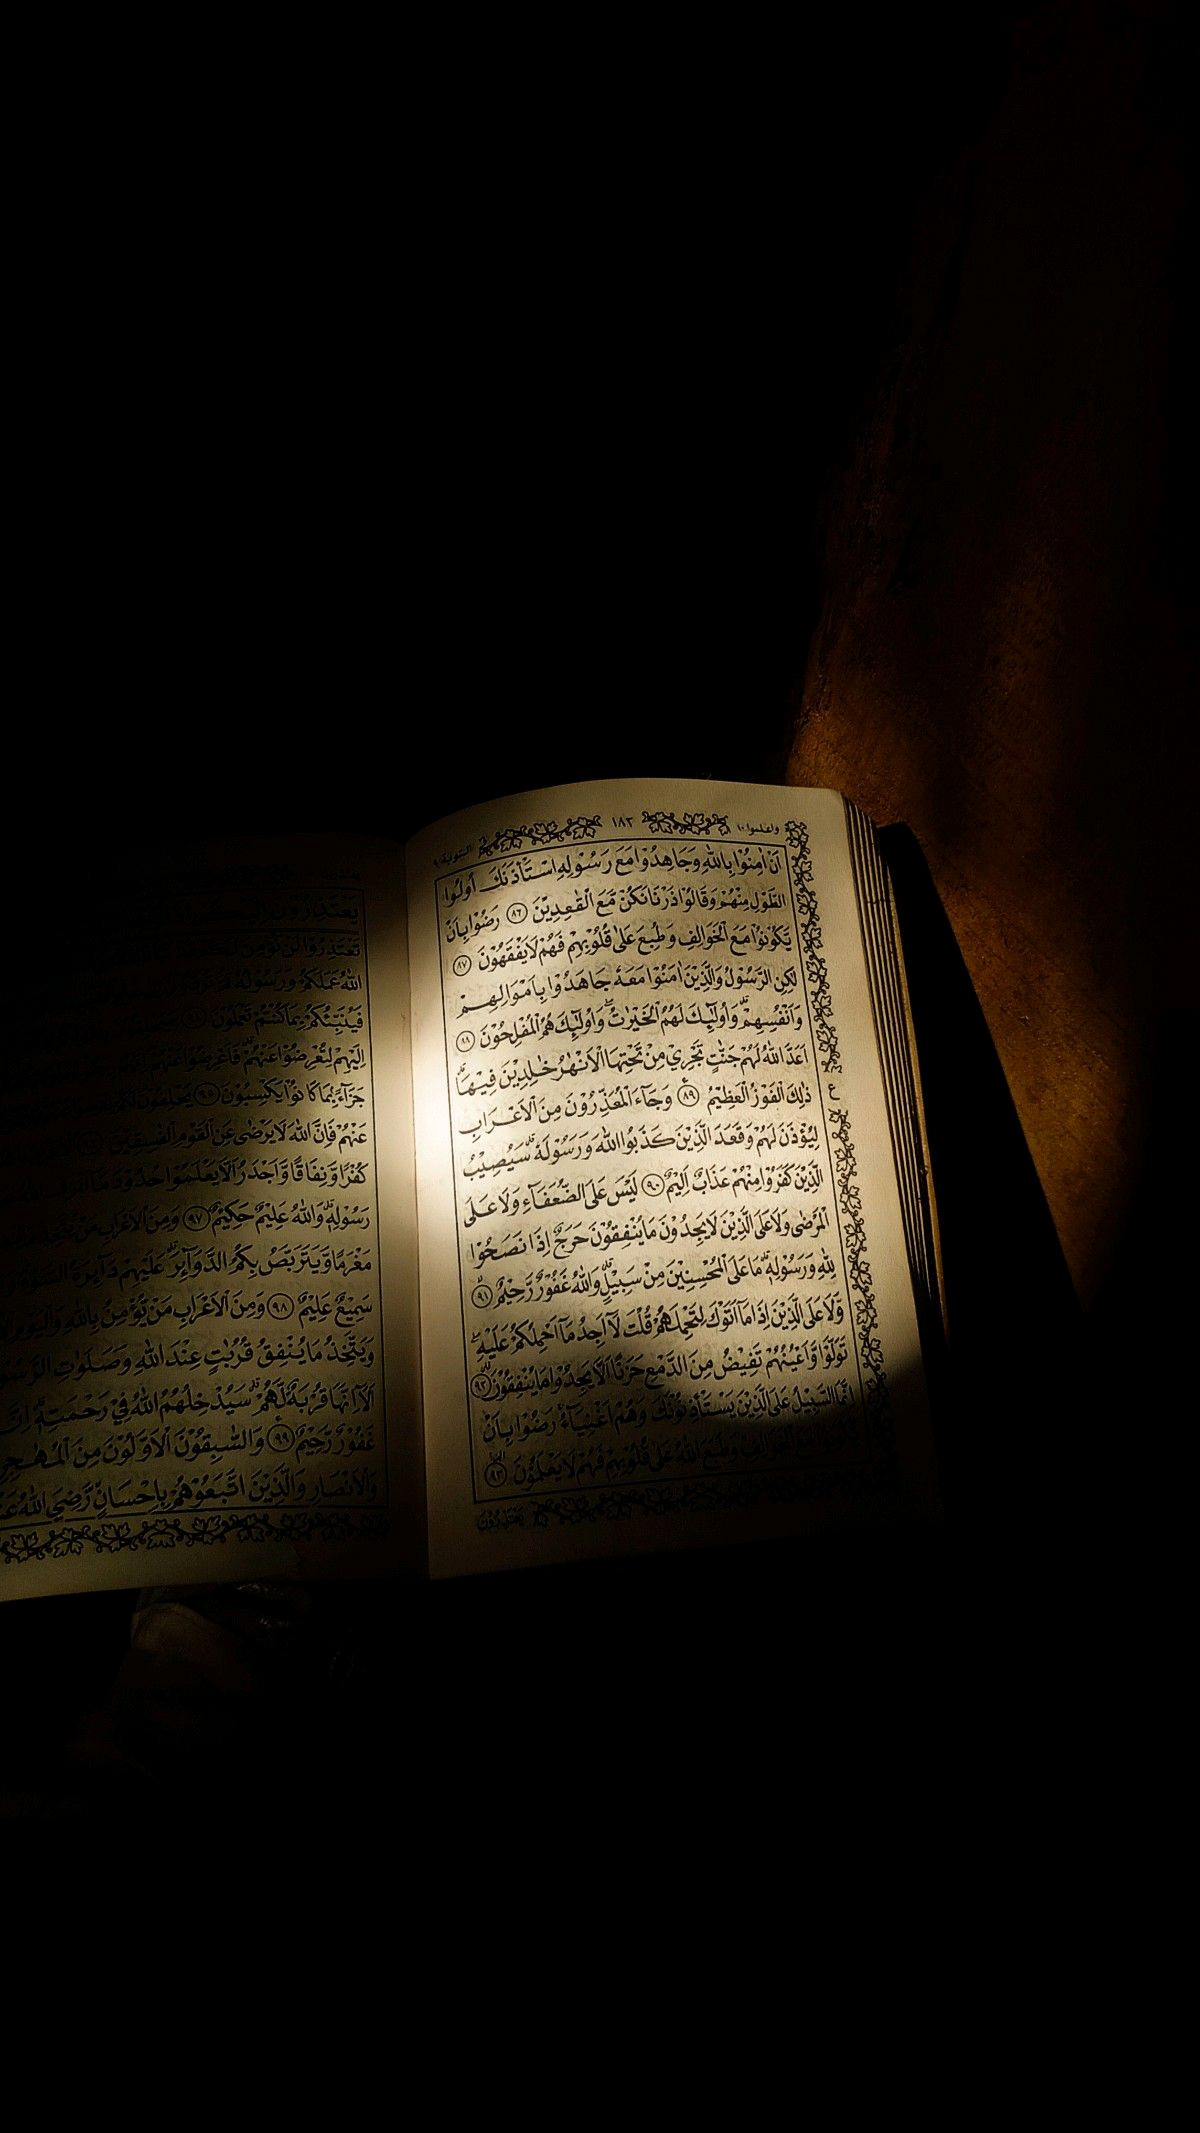 واعلموا ١٠ ١٨٣ التوبة ٩
اَنْ اٰمِنُوْا بِاللّٰهِ وَجَاهِدُوْا مَعَ رَسُوْلِهِ اسْتَاْذَنَكَ اُولُوا
الطَّوْلِ مِنْهُمْ وَقَالُوْا ذَرْنَا نَكُنْ مَّعَ الْقٰعِدِيْنَ ٨٦ رَضُوْا بِاَنْ
يَّكُوْنُوْا مَعَ الْخَوَالِفِ وَطُبِعَ عَلٰى قُلُوْبِهِمْ فَهُمْ لَا يَفْقَهُوْنَ ٨٧
لٰكِنِ الرَّسُوْلُ وَالَّذِيْنَ اٰمَنُوْا مَعَهٗ جَاهَدُوْا بِاَمْوَالِهِمْ
وَاَنْفُسِهِمْ ۗ وَاُولٰۤىِٕكَ لَهُمُ الْخَيْرٰتُ ۖ وَاُولٰۤىِٕكَ هُمُ الْمُفْلِحُوْنَ ٨٨
اَعَدَّ اللّٰهُ لَهُمْ جَنّٰتٍ تَجْرِيْ مِنْ تَحْتِهَا الْاَنْهٰرُ خٰلِدِيْنَ فِيْهَا ۗ
ذٰلِكَ الْفَوْزُ الْعَظِيْمُ ٨٩ وَجَاۤءَ الْمُعَذِّرُوْنَ مِنَ الْاَعْرَابِ
ع
لِيُؤْذَنَ لَهُمْ وَقَعَدَ الَّذِيْنَ كَذَبُوا اللّٰهَ وَرَسُوْلَهٗ ۗ سَيُصِيْبُ
الَّذِيْنَ كَفَرُوْا مِنْهُمْ عَذَابٌ اَلِيْمٌ ٩٠ لَيْسَ عَلَى الضُّعَفَاۤءِ وَلَا عَلَى
الْمَرْضٰى وَلَا عَلَى الَّذِيْنَ لَا يَجِدُوْنَ مَا يُنْفِقُوْنَ حَرَجٌ اِذَا نَصَحُوْا
لِلّٰهِ وَرَسُوْلِهٖ ۗ مَا عَلَى الْمُحْسِنِيْنَ مِنْ سَبِيْلٍ ۗ وَاللّٰهُ غَفُوْرٌ رَّحِيْمٌ ٩١
وَّلَا عَلَى الَّذِيْنَ اِذَا مَآ اَتَوْكَ لِتَحْمِلَهُمْ قُلْتَ لَآ اَجِدُ مَآ اَحْمِلُكُمْ عَلَيْهِ ۖ
تَوَلَّوْا وَّاَعْيُنُهُمْ تَفِيْضُ مِنَ الدَّمْعِ حَزَنًا اَلَّا يَجِدُوْا مَا يُنْفِقُوْنَ ٩٢
اِنَّمَا السَّبِيْلُ عَلَى الَّذِيْنَ يَسْتَأْذِنُوْنَكَ وَهُمْ اَغْنِيَاۤءُ ۚ رَضُوْا بِاَنْ
يَّكُوْنُوْا مَعَ الْخَوَالِفِ ۙ وَطَبَعَ اللّٰهُ عَلٰى قُلُوْبِهِمْ فَهُمْ لَا يَعْلَمُوْنَ ٩٣
يَعْتَذِرُوْنَ
يَعْتَذِرُوْنَ
تَعْتَذِرُوْا لَنْ نُّؤْمِنَ لَكُمْ
اللّٰهُ عَمَلَكُمْ وَرَسُوْلُهٗ
فَيُنَبِّئُكُمْ بِمَا كُنْتُمْ تَعْمَلُوْنَ
اِلَيْهِمْ لِتُعْرِضُوْا عَنْهُمْ ۗ فَاَعْرِضُوْا عَنْهُمْ
جَزَاۤءً ۢبِمَا كَانُوْا يَكْسِبُوْنَ ٩٥ يَحْلِفُوْنَ لَكُمْ
عَنْهُمْ فَاِنَّ اللّٰهَ لَا يَرْضٰى عَنِ الْقَوْمِ الْفٰسِقِيْنَ
كُفْرًا وَّنِفَاقًا وَّاَجْدَرُ اَلَّا يَعْلَمُوْا حُدُوْدَ مَآ
رَسُوْلِهٖ ۗ وَاللّٰهُ عَلِيْمٌ حَكِيْمٌ ٩٧ وَمِنَ الْاَعْرَابِ مَنْ
مَغْرَمًا وَّيَتَرَبَّصُ بِكُمُ الدَّوَاۤىِٕرَ ۗ عَلَيْهِمْ دَاۤىِٕرَةُ السَّوْءِ
سَمِيْعٌ عَلِيْمٌ ٩٨ وَمِنَ الْاَعْرَابِ مَنْ يُّؤْمِنُ بِاللّٰهِ وَالْيَوْمِ
وَيَتَّخِذُ مَا يُنْفِقُ قُرُبٰتٍ عِنْدَ اللّٰهِ وَصَلَوٰتِ الرَّسُوْلِ
اَلَآ اِنَّهَا قُرْبَةٌ لَّهُمْ ۗ سَيُدْخِلُهُمُ اللّٰهُ فِيْ رَحْمَتِهٖ ۗ اِنَّ
غَفُوْرٌ رَّحِيْمٌ ٩٩ وَالسّٰبِقُوْنَ الْاَوَّلُوْنَ مِنَ الْمُهٰجِرِيْنَ
وَالْاَنْصَارِ وَالَّذِيْنَ اتَّبَعُوْهُمْ بِاِحْسَانٍ رَّضِيَ اللّٰهُ